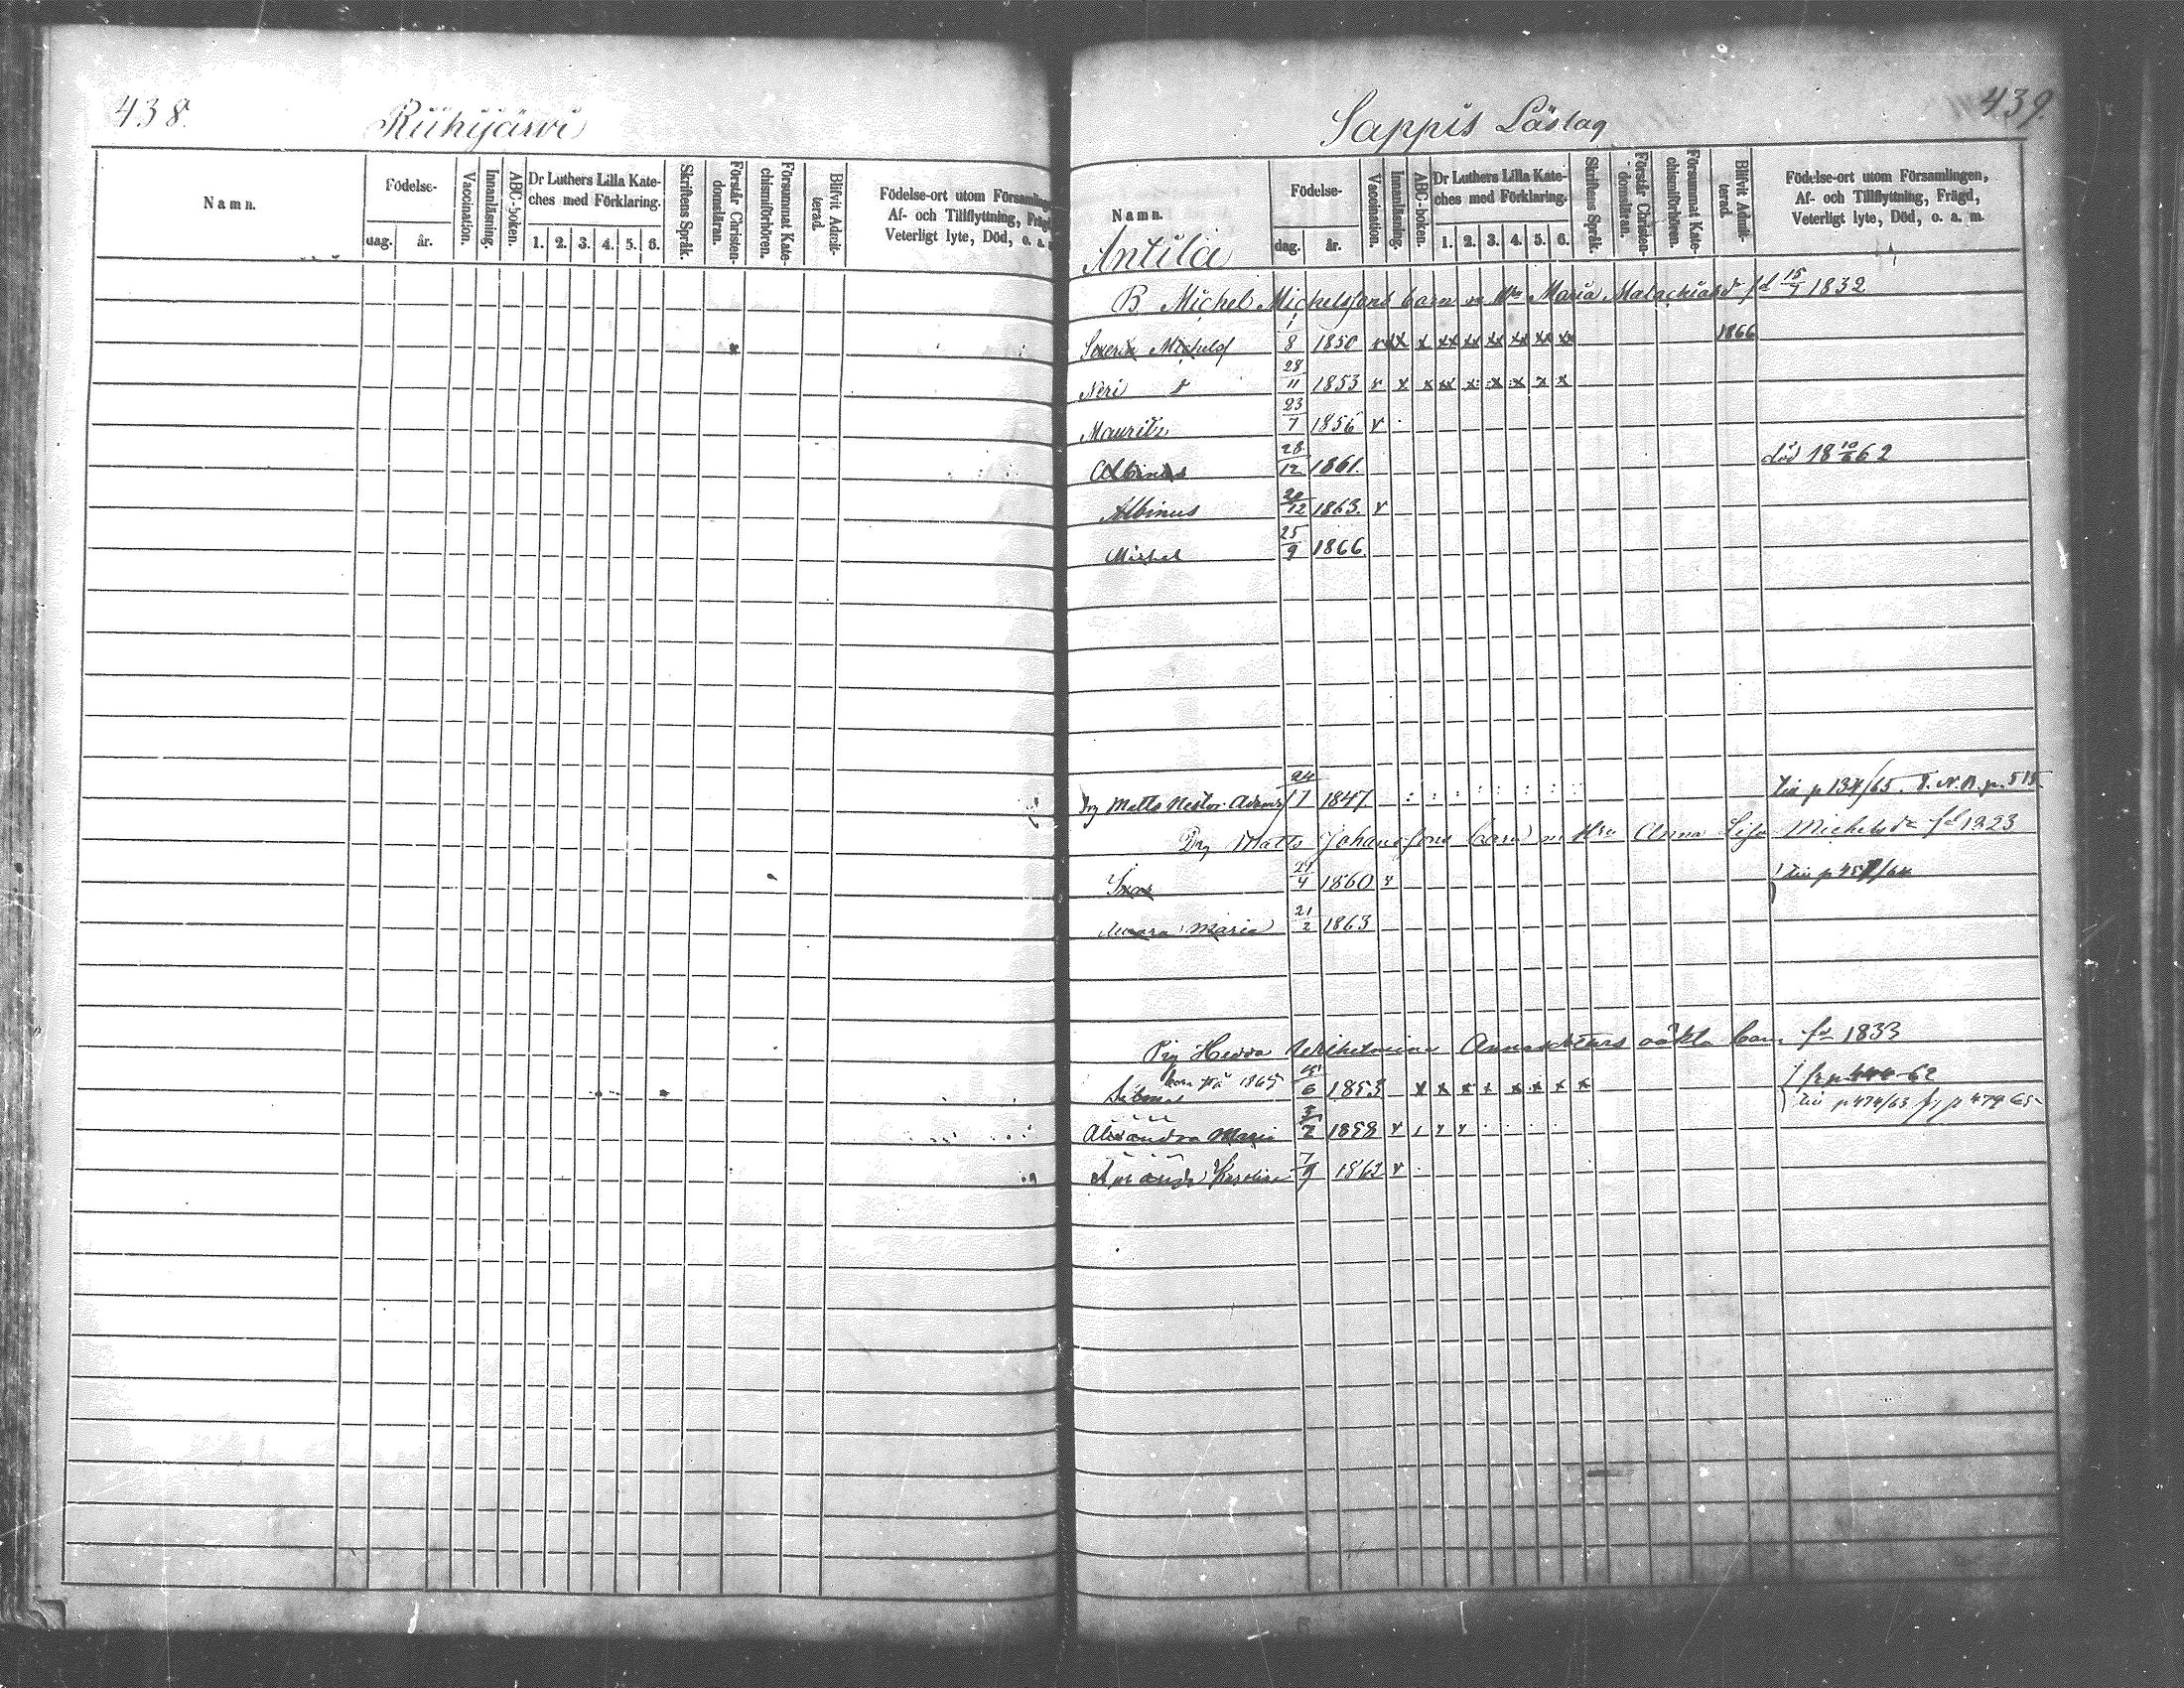 438.
Riihijärvi
Namn.
Födelse-
dag. år.
Vaccination.
Innanläsning.
ABC-boken.
Dr Luthers Lilla Kate-
ches med Förklaring.
1. 2. 3. 4. 5. 6.
Skriftens Språk.
Förstår Christen-
domsläran.
Försummat Kate-
chismiförhören.
Blifvit Admit-
terad.
Födelse-ort utom Församlingen
Af- och Tillflyttning, Frägd
Veterligt lyte, Död, o. a. m
439.
Sappis Läslag
Namn.
Födelse-
dag. år.
Vaccination.
Innanläsning.
ABC-boken.
Dr Luthers Lilla Kate-
ches med Förklaring.
1. 2. 3. 4. 5. 6.
Skriftens Språk.
Förstår Christen-
domsläran.
Försummat Kate-
chismiförhören.
Blifvit Admit-
terad.
Födelse-ort utom Församlingen,
Af- och Tillflyttning, Frägd,
Veterligt lyte, Död, o. a. m.
Antila
B Michel Michelssons barn m Maria Malachiasdr fd 15/7 1832
Michelss 1/8 1850 v xx x xx xx xx xx xx xx 1866
28/11 1853 v x x xx x x x x x
Mauritz 23/7 1856 v
Albinus 28/12 1861 död 18 10/6 62
Albinus 20/12 1863 v
Michel 25/9 1866
Drg Matts Nestor 24/7 1847 p 134/65
Drg Matts Johanssons barn m Hru Anna Lisa Michelsdr
1860 v
Maria 21/2 1863
Pig Hedda Wilhelmina oäkta barn fd 1833
1865 1853 x x x x x x x x 62
p 474/63 p 479 65
Alexandra Maria 1858 v
Amanda Karolina 7/9 1862 v